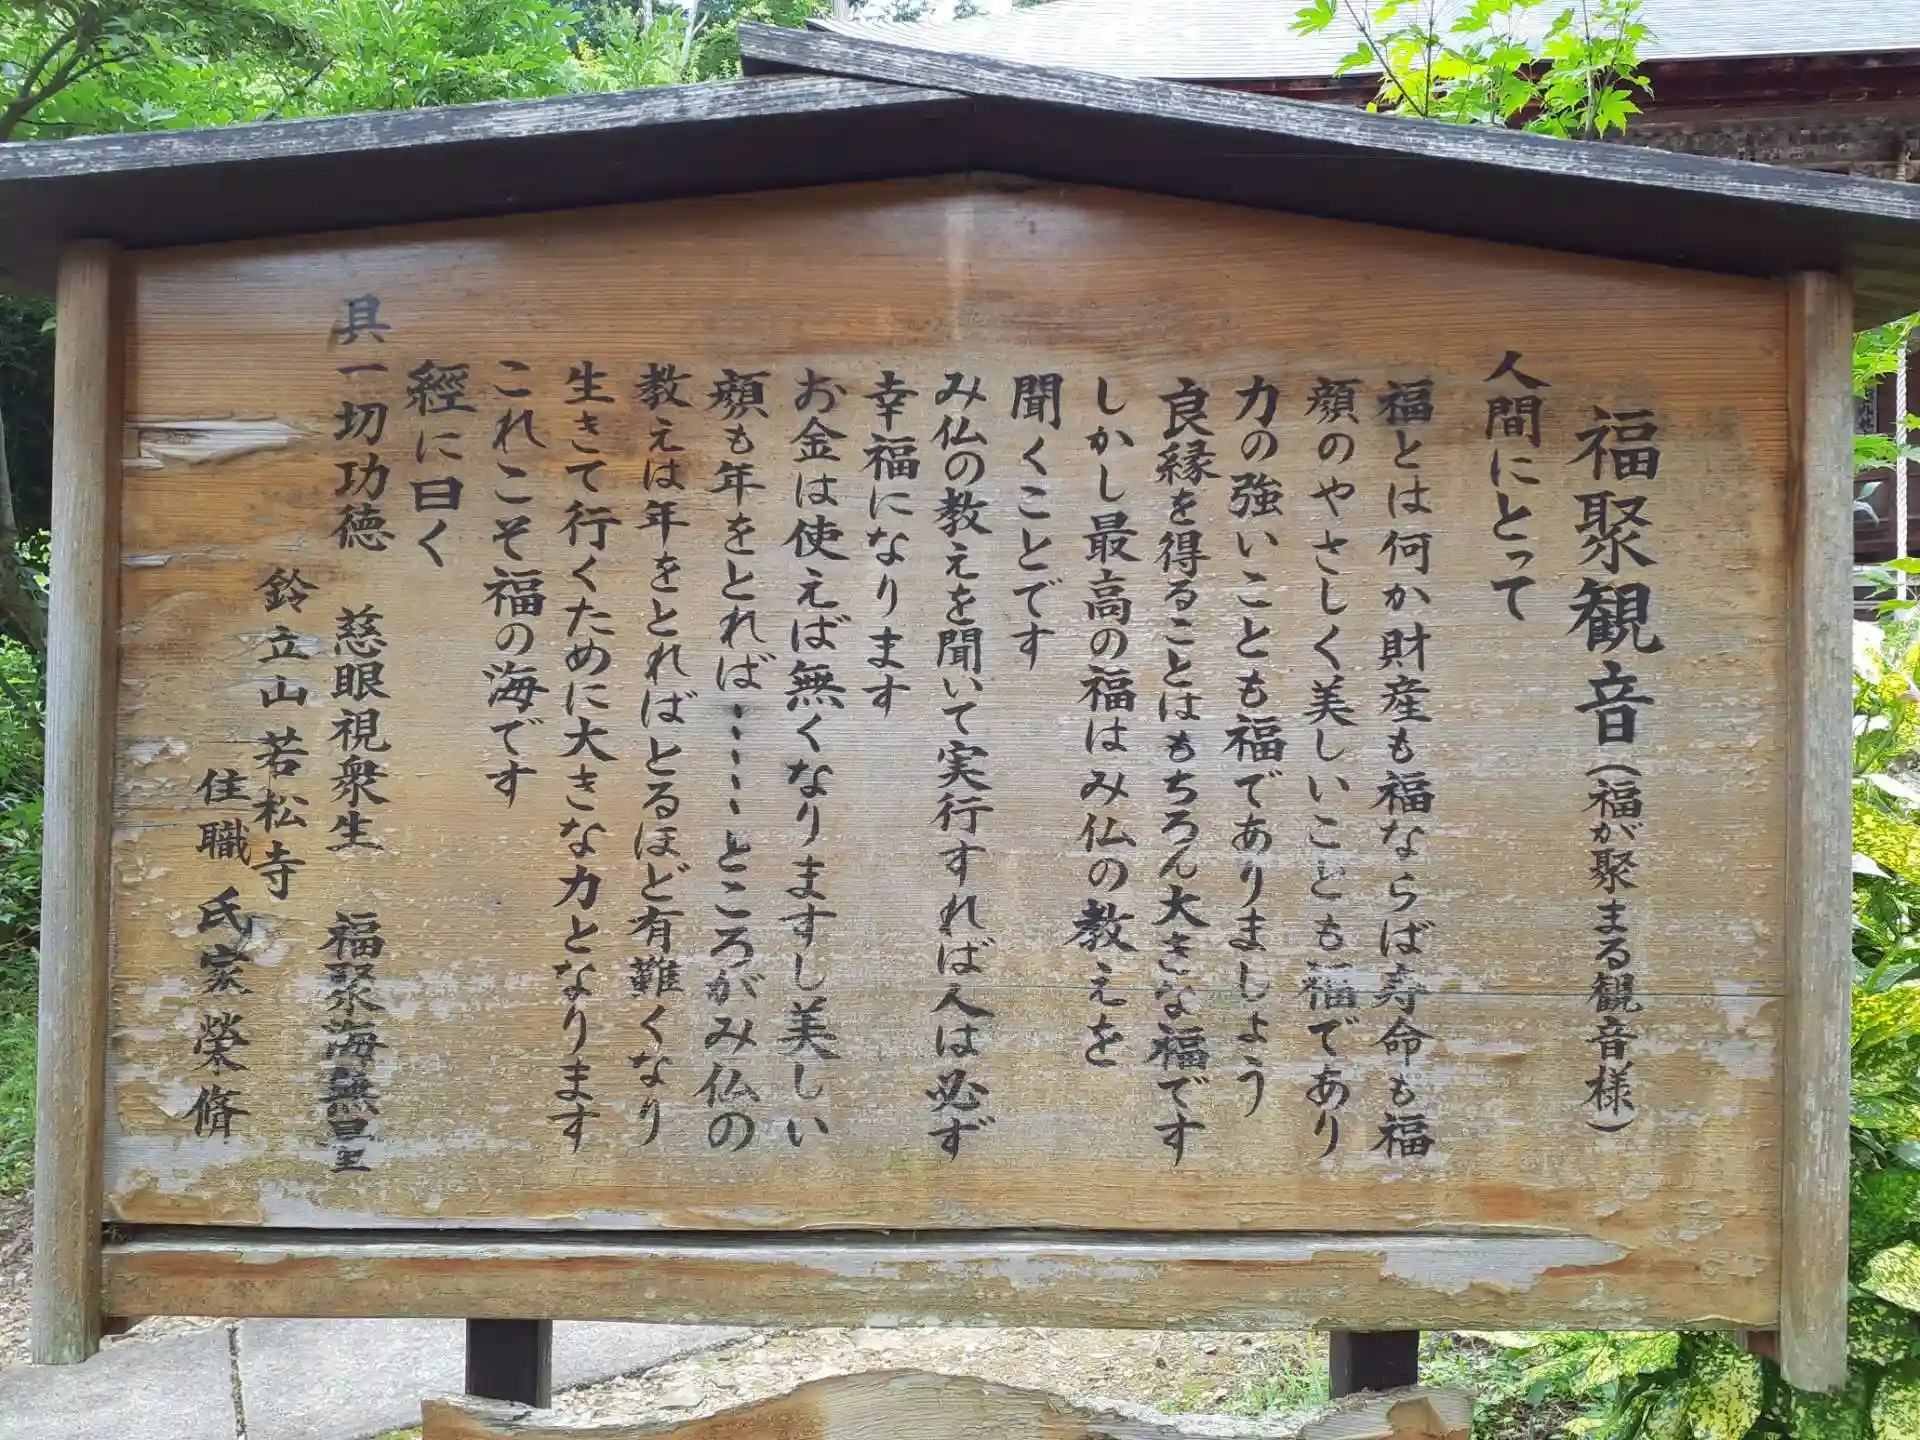 福聚観音（福が聚まる観音様）
人間にとって
福とは何か財産も福ならば寿命も福
顔のやさしく美しいことも福であり
力の強いことも福でありましょう
良縁を得ることはもちろん大きな福です
しかし最高の福はみ仏の教えを
聞くことです
み仏の教えを聞いて実行すれば人は必ず
幸福になります
お金は使えば無くなりますし美しい
顔も年をとれば・・・・ところがみ仏の
教えは年をとればとるほど有難くなり
生きて行くために大きな力となります
これこそ福の海です
經に曰く
具一切功徳　慈眼視衆生　福聚海無量
鈴立山若松寺
住職　氏家榮脩